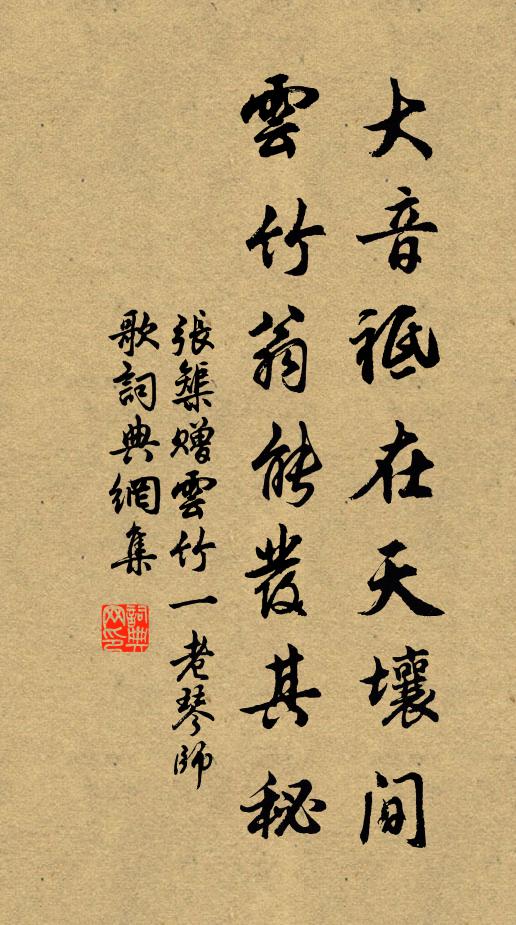 大音祗在天壤間
雲竹翁能發其秘
張榘贈雲竹一老琴師
歌詞典網集
詞典網印